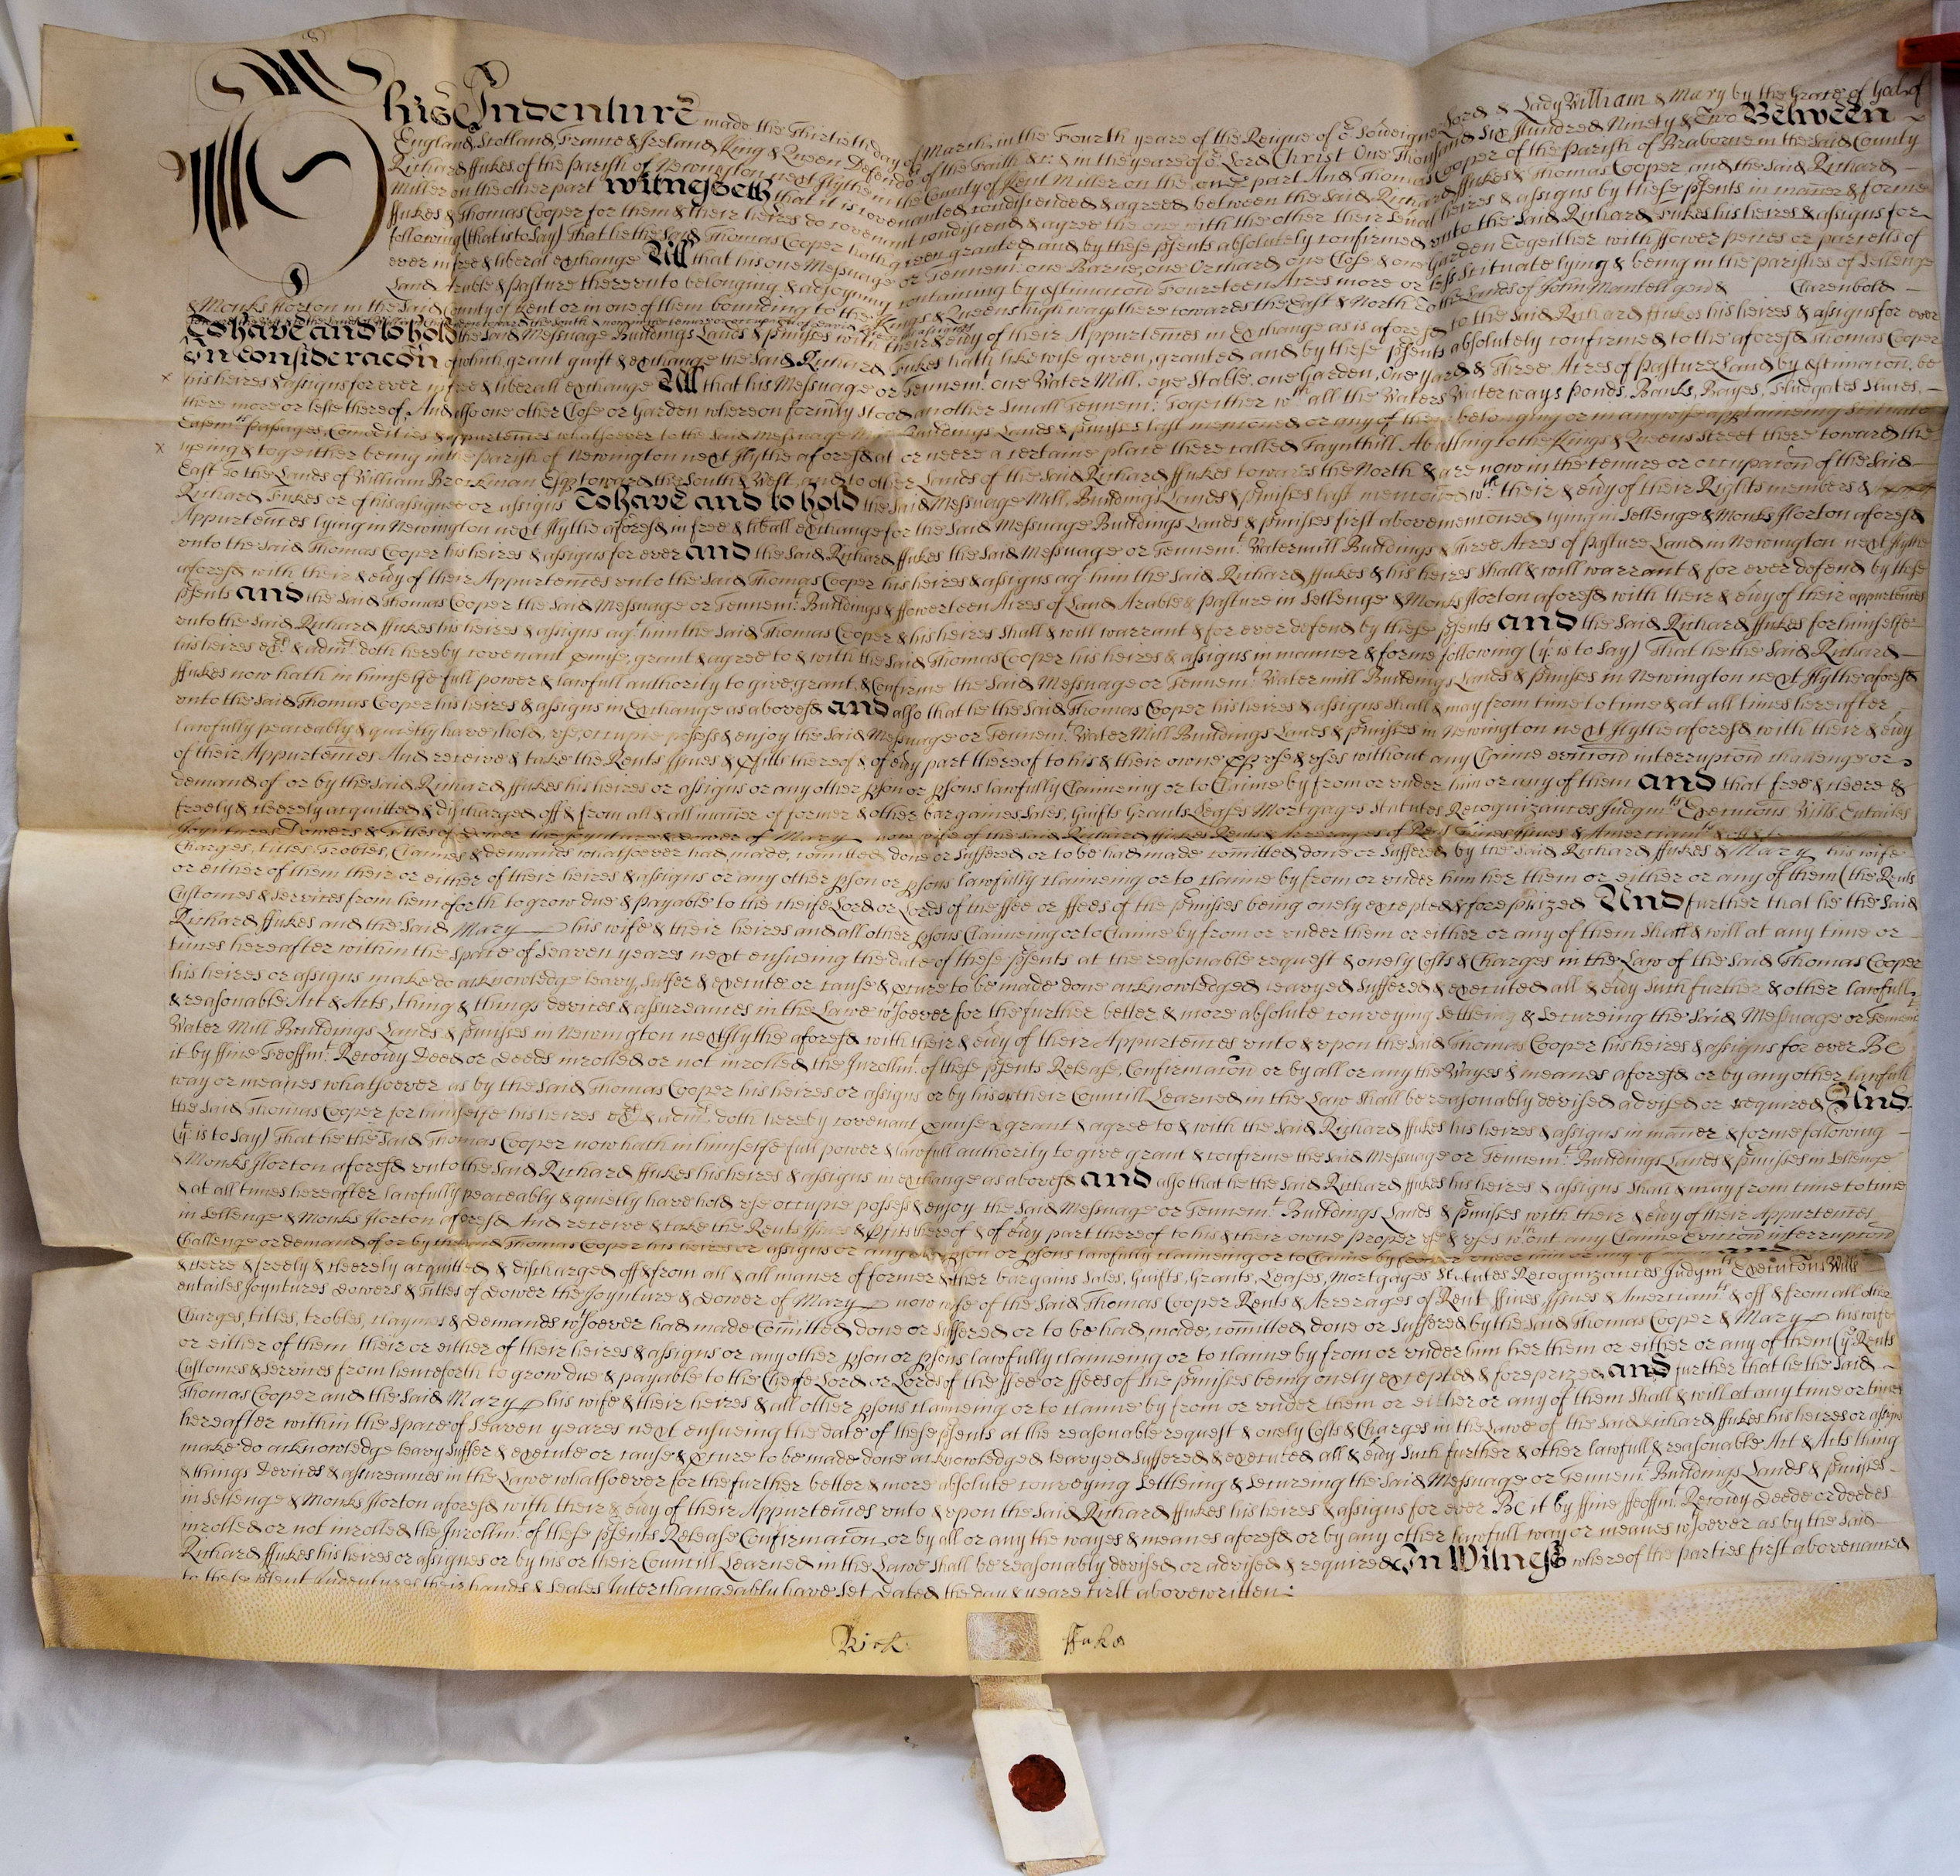 This Indenture made the Thirtieth day of March, in the Fourth yeare of the Reigne of or Soveigne Lord & Lady William & Mary by the Grace of God of
England, Scotland, France & Ireland, King & Queen Defendors of the Faith &c & in the yeare of or Lord Christ One Thousand Six Hundred Ninety & Two Between
Richard ffukes of the Parish of Newington next Hythe in the County of Kent Miller on the one part And Thomas Cooper of the Parish of Braborne in the Said County
Miller on the other part Witnesseth that it is covenanted condiscended & agreed between the Said Richard ffukes & Thomas Cooper, and the Said Richard
ffukes & Thomas Cooper for them & their heires do covenant condiscend & agree the one with the other their heires & assigns by these psents in maner & forme
following (that is to Say) That he the Said Thomas Cooper hath given granted and by these psents absolutely confirmed unto the Said Richard ffukes his heires & assigns for
ever in free & liberal exchange All that his one Messuage or Tennemt. one Barne, one Orchard one Close & one Garden Together with ffower peices or parcells of
Land Arable & Pasture thereunto belonging & adjoyning containing by estimacon Fourteen Acres more or less Scituate lying & being in the parishes of Sellenge
& Monks Horton in the Said County of Kent or in one of them bounding to the Kings & Queens highways there towards the East & North To the Lands of John Mantell gent & Clarenbold
To have and to hold the Said Messuage Buildings Lands & pmisses with their & evy of their Appurtences in Exchange as is aforesd to the Said Richard ffukes his heires & assigns for ever
In consideracon of which grant guift & exchange the Said Richard ffukes hath likewise given, granted and by these psents absolutely confirmed to the aforesd Thomas Cooper
his heires & assigns for ever in free & liberall exchange All that his Messuage or Tennemt. one Water Mill, one Stable, one Garden, One yard & Three Acres of Pasture Land by estimacon, be
there more or lesse thereof, And also one other Close or Garden whereon formerly Stood another Small Tennemt. Together wth. all the Waters Waterways ponds, Banks, Bayes, Fludgates Sluces,
Easemts. Passages, Comodities & appurtences whatsoever to the Said Messuage Buildings Lands & pmisses last mentioned or any of them belonging or in any wise appertaineing Scituate
lyeing & together being in the Parish of Newington next Hythe aforesd at or neere a certaine place there called Faynthill Abutting to the Kings & Queens Street there toward the
East To the Lands of William Brockman Esqr. toward the South & West, and to other Lands of the Said Richard ffukes towards the North & are now in the tenure or occupacon of the Said
Richard ffukes or of his assignee or assigns To have and to hold the Said Messuage Mill, Buildings Lands & pmisses last mentioned wth. their & evy of their Rights members &
Appurtences lying in Newington next Hythe aforesd in free & liball exchange for the Said Messuage Buildings Lands & pmisses first above mentioned lying in Sellenge & Monks Horton aforesd
unto the Said Thomas Cooper his heires & assigns for ever And the Said Richard ffukes the Said Messuage or Tennemt. Watermill Buildings & Three Acres of Pasture Land in Newington next Hythe
aforesd with their & evy of their Appurtences unto the Said Thomas Cooper his heires & assigns agt him the Said Richard ffukes & his heires Shall & will warrant & for ever defend by these
psents And the Said Thomas Cooper the Said Messuage or Tennemt. Buildings & ffowerteen Acres of Land Arable & Pasture in Sellenge & Monks Horton aforesd with their & evy of their appurtences
unto the Said Richard ffukes his heires & assigns agt him the Said Thomas Cooper & his heires Shall & will warrant & for ever defend by these psents And the Said Richard ffukes for himselfe
his heires & admrs. doth hereby covenant pmise, grant & agree to & with the Said Thomas Cooper his heires & assigns in manner & forme following (yt. is to Say) That he the Said Richard
ffukes now hath in himselfe full power & lawfull authority to give, grant, & Confirme the Said Messuage or Tennemt. Watermill Buildings Lands & pmisses in Newington next Hythe aforesd
unto the Said Thomas Cooper his heires & assigns in Exchange as abovesd And also that he the Said Thomas Cooper his heires & assigns Shall & may from time to time & at all times hereafter
lawfully peaceably & quietly have, hold, use, occupie posess & enjoy the Said Messuage or Tennemt. Water Mill Buildings Lands & pmisses in Newington next Hythe aforesd with their & evy
of their Appurtences And receive & take the Rents Issues & pfitts thereof & of evy part thereof to his & their owne use & uses without any Claime eviccon interrupcon challenge or
demand of or by the Said Richard ffukes his heires or assigns or any other pson or psons lawfully Claimeing or to Claime by from or under him or any of them And that free & cleere &
freely & cleerely acquitted & discharged off & from all & all maner of former & other bargaines Sales, Guifts Grants Leases Mortgages Statutes Recognizances Judgmts. Execucons, Wills Entailes
Joyntures Dowers & Titles of Dower the Joynture & dower of Mary now wife of the Said Richard ffukes Rents & Arrerages of Rent Fines Issues & Amerciamts.
Charges, titles, Trobles, Claimes & demands whatsoever had made, comitted done or Suffered or to be had made comitted done or Suffered by the Said Richard ffukes & Mary his wife
or either of them their or either of their heires & assigns or any other pson or psons lawfully claimeing or to claime by from or under him her them or either or any of them (the Rents
Customes & Services from henceforth to grow due & payable to the cheife Lord or Lords of the ffee or ffees of the pmisses being onely excepted & foreprized And further that he the Said
Richard ffukes and the Said Mary his wife & their heires and all other psons Claimeing or to Claime by from or under them or either or any of them Shall & will at any time or
times hereafter within the Space of Seaven yeares next ensueing the date of these psents at the reasonable request & onely Costs & Charges in the Law of the Said Thomas Cooper
his heires or assigns make do acknowledge leavy, Suffer & execute or cause & pcure to be made done acknowledged leavyed Suffered & executed all & evy Such further & other lawfull
& reasonable Act & Acts, thing & things devices & assureances in the Lawe wtsoever for the further better & more absolute conveying Settleing & Secureing the Said Messuage or Tenemt
Water Mill Buildings Lands & pmisses in Newington next Hythe aforesd with their & evy of their Appurtences unto & upon the Said Thomas Cooper his heires & assigns for ever Be
it by ffine Feoffmt. Recovy Deed or Deeds inrolled or not inrolled the Inrollmt. of these psents Release, Confirmacon or by all or any the Wayes & meanes aforesd or by any other lawfull
way or meanes whatsoever as by the Said Thomas Cooper his heires or assigns or by his or their Councill Learned in the Law Shall be reasonably devised advised or required And
the Said Thomas Cooper for himselfe his heires & admrs. doth hereby covenant pmise & grant & agree to & with the Said Richard ffukes his heires & assigns in maner & forme following
(yt. is to Say) That he the Said Thomas Cooper now hath in himselfe full power & lawfull authority to give grant & confirme the Said Messuage or Tennemt. Buildings Lands & pmisses in Sellenge
& Monks Horton aforesd unto the Said Richard ffukes his heires & assigns in exchange as abovesd And also that he the Said Richard ffukes his heires & assigns Shall & may from time to time
& at all times hereafter lawfully peaceably & quietly have hold use occupie posess & enjoy the Said Messuage or Tennemt. Buildings Lands & pmisses with their & evy of their Appurtences
in Sellenge & Monks Horton aforesd And receive & take the Rents Issues & pfitts thereof & of evy part thereof to his & their owne proper use & uses wthout any Claime eviccon interrupcon
Challenge or demand of or by the Said Thomas Cooper his heires or assigns or any other pson or psons lawfully claimeing or to Claime by from or under him or any of them And
& cleere & freely & cleerely acquitted & discharged off & from all & all maner of former & other bargains Sales, Guifts, Grants, Leases, Mortgages Statutes Recognizances Judgmts Execucons Wills
entailes Joyntures Dowers & Titles of Dower the Joynture & Dower of Mary now wife of the Said Thomas Cooper Rents & Arrerages of Rent ffines, Issues & Amerciamts. & off & from all other
Charges, titles, trobles, claymes & demands wtsoever had made Comitted done or Suffered or to be had, made, comitted done or Suffered by the Said Thomas Cooper & Mary his wife
or either of them their or either of their heires & assigns or any other pson or psons lawfully claimeing or to claime by from or under him her them or either or any of them (ye Rents
Customes & Services from henceforth to grow due & payable to the Cheife Lord or Lords of the ffee or ffees of the pmisses being onely excepted & foreprized, And further that he the Said
Thomas Cooper and the Said Mary his wife & their heires & all other psons claimeing or to claime by from or under them or either or any of them Shall & will at any time or times
hereafter within the Space of Seaven yeares next ensueing the date of these psents at the reasonable request & onely Costs & Charges in the Lawe of the Said Richard ffukes his heires or assigns
make do acknowledge leavy Suffer & execute or cause & pcure to be made done acknowledged leavyed Suffered & executed all & evy Such further & other lawfull & reasonable Act & Acts thing
& things Devices & assureances in the Lawe whatsoever for the further better & more absolute conveying Settleing & Secureing the Said Messuage or Tennemt. Buildings Lands & pmisses
in Sellenge & Monks Horton aforesd with their & evy of their Appurtences unto & upon the Said Richard ffukes his heires & assigns for ever Be it by ffine ffeoffmt. Recovy Deede or deedes
inrolled or not inrolled the Inrollmt. of these psents Release Confirmacon, or by all or any the wayes & meanes aforesd or by any other lawfull way or meanes wtsoever as by the Said
Richard ffukes his heires or assignes or by his or their Councill Learned in the Lawe Shall be reasonably devised or advised & required In Witness whereof the parties first abovenamed
to these psent Indentures their hands & Seales Interchangeably have Set Dated the day & yeare first abovewritten
Rich ffuks